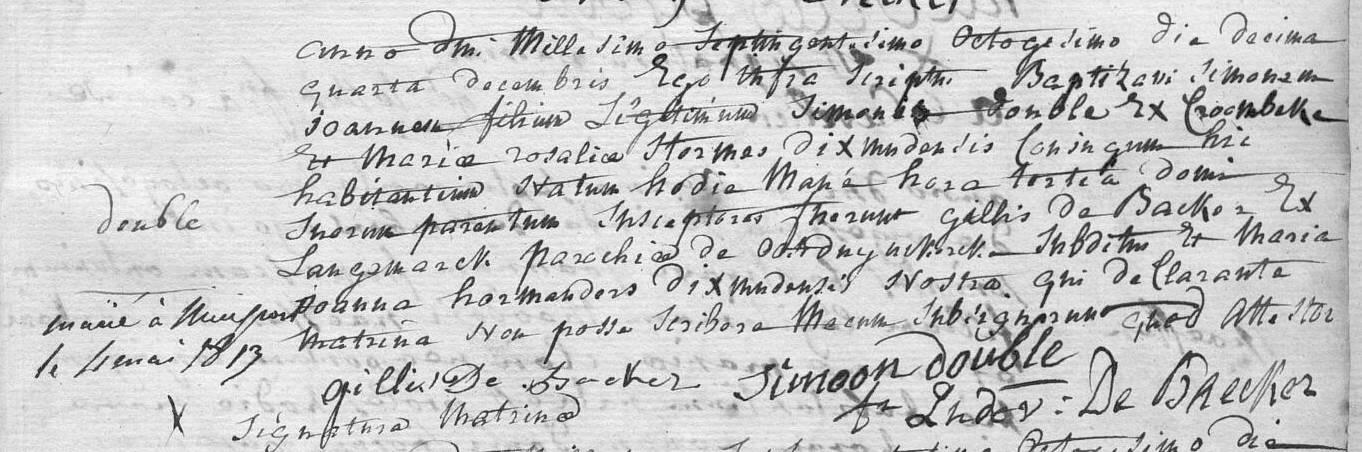 anno Dmi Millesimo Septingentesimo Octogesimo die decima
quarta decembris Ego infra Scriptus Baptizavi Simonem
joannem filium Legitimum Simonis double Ex Croombeke
Et Mariæ rosaliæ Stormes dixmudensis Conjugum hic
habitantium Natum hodie Mané hora tertiâ domi
double
Suorum parentum Susceptores fuerunt gillis de Backer Ex
Langemarck parochiæ de subditus Et Maria
joanna hormanders dixmudensis Nostra. qui deClarante
marié à Nieuport
Matrina Non posse Scribere Mecum Subsignarunt quod Attestor
le 4 mai 1813
gillis De Backer Simoon double
X
Signatura Matrinæ
fr Ludov: De Baecker
Octogesimo die